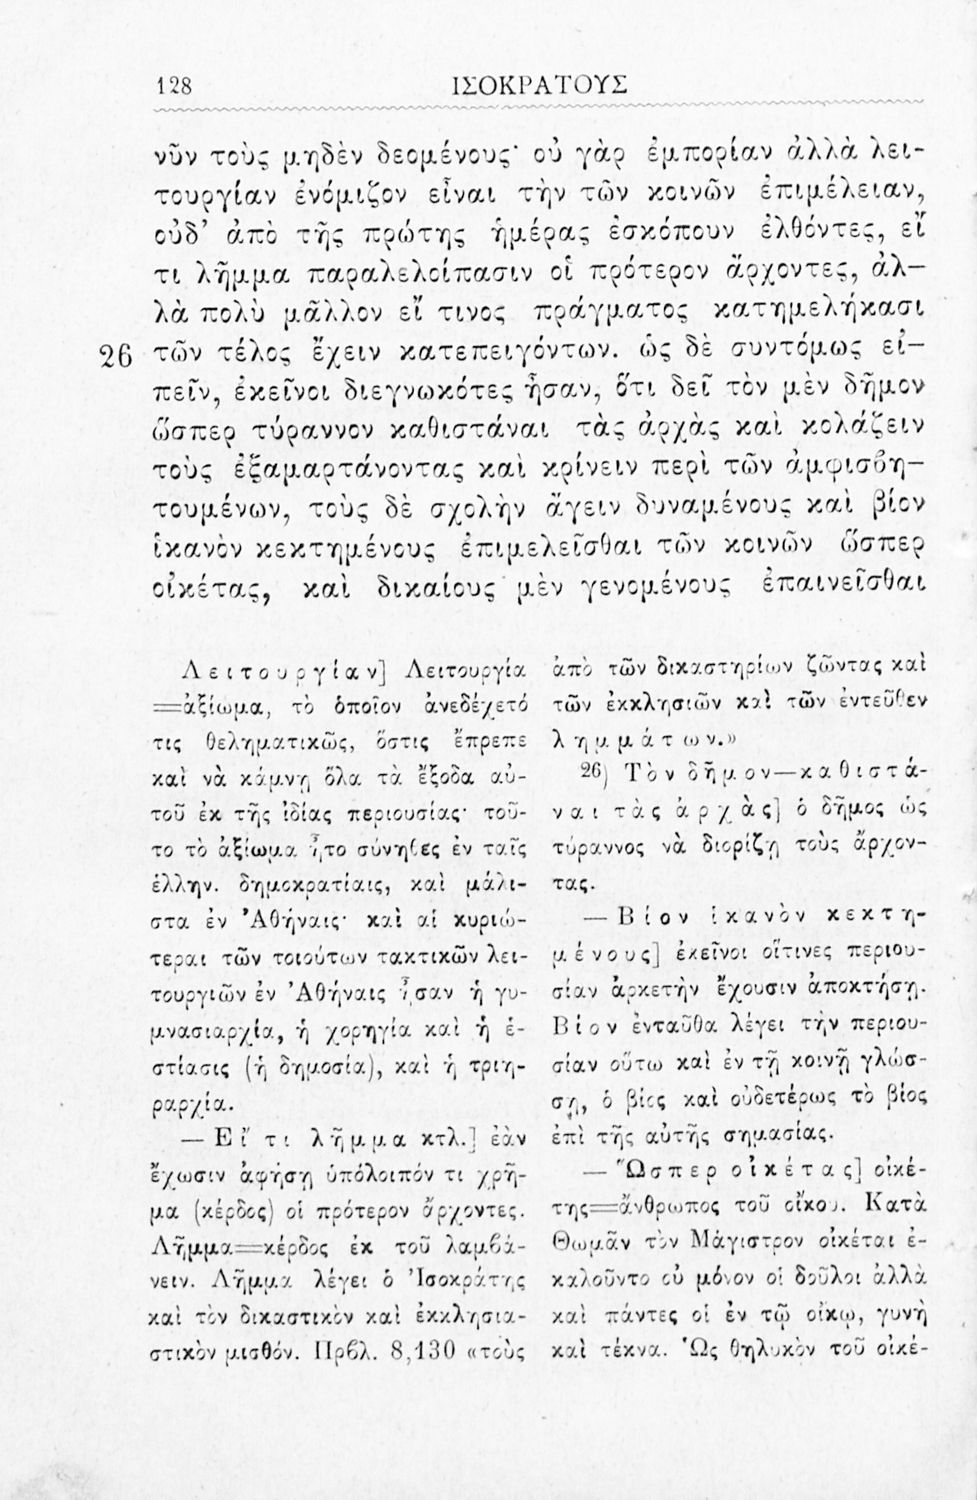 128
ΙΣΟΚΡΑΤΟΥΣ
νῦν τοὺς μηδὲν δεομένους· οὐ γὰρ ἐμπορίαν ἀλλὰ λει-
τουργίαν ἐνόμιζον εἶναι τὴν τῶν κοινῶν ἐπιμέλειαν,
οὐδ’ ἀπὸ τῆς πρώτης ἡμέρας ἐσκόπουν ἐλθόντες, εἴ
τι λῆμμα παραλελοίπασιν οἱ πρότερον ἄρχοντες, ἀλ-
λὰ πολὺ μᾶλλον εἴ τινος πράγματος κατημελήκασι
26 τῶν τέλος ἔχειν κατεπειγόντων. ὡς δὲ συντόμως εἰ-
πεῖν, ἐκεῖνοι διεγνωκότες ἦσαν, ὅτι δεῖ τὸν μὲν δῆμον
ὥσπερ τύραννον καθιστάναι τὰς ἀρχὰς καὶ κολάζειν
τοὺς ἐξαμαρτάνοντας καὶ κρίνειν περὶ τῶν ἀμφισϐη-
τουμένων, τοὺς δὲ σχολὴν ἄγειν δυναμένους καὶ βίον
ἱκανὸν κεκτημένους ἐπιμελεῖσθαι τῶν κοινῶν ὥσπερ
οἰκέτας, καὶ δικαίους μὲν γενομένους ἐπαινεῖσθαι
Λειτουργίαν] Λειτουργία
=ἀξίωμα, τὸ ὁποῖον ἀνεδέχετό
τις θεληματικῶς, ὅστις ἔπρεπε
καὶ νὰ κάμνῃ ὅλα τὰ ἔξοδα αὐ-
τοῦ ἐκ τῆς ἰδίας περιουσίας· τοῦ-
το τὸ ἀξίωμα ἦτο σύνηθες ἐν ταῖς
ἑλλην. δημοκρατίαις, καὶ μάλι-
στα ἐν Ἀθήναις· καὶ αἱ κυριώ-
τεραι τῶν τοιούτων τακτικῶν λει-
τουργιῶν ἐν Ἀθήναις ἦσαν ἡ γυ-
μνασιαρχία, ἡ χορηγία καὶ ἡ ἑ-
στίασις (ἡ δημοσία), καὶ ἡ τριη-
ραρχία.
— Εἴ τι λῆμμα κτλ.] ἐὰν
ἔχωσιν ἀφήσῃ ὑπόλοιπόν τι χρῆ-
μα (κέρδος) οἱ πρότερον ἄρχοντες.
Λῆμμα=κέρδος ἐκ τοῦ λαμϐά-
νειν. Λῆμμα λέγει ὁ Ἰσοκράτης
καὶ τὸν δικαστικὸν καὶ ἐκκλησια-
στικὸν μισθόν. Πρϐλ. 8,130 «τοὺς
ἀπὸ τῶν δικαστηρίων ζῶντας καὶ
τῶν ἐκκλησιῶν καὶ τῶν ἐντεῦθεν
λημμάτων.»
26) Τὸν δῆμον—καθιστά-
ναι τὰς ἀρχὰς] ὁ δῆμος ὡς
τύραννος νὰ διορίζῃ τοὺς ἄρχον-
τας.
— Βίον ἱκανὸν κεκτη-
μένους] ἐκεῖνοι οἵτινες περιου-
σίαν ἀρκετὴν ἔχουσιν ἀποκτήσῃ.
Βίον ἐνταῦθα λέγει τὴν περιου-
σίαν οὕτω καὶ ἐν τῇ κοινῇ γλώσ-
σῃ, ὁ βίος καὶ οὐδετέρως τὸ βίος
ἐπὶ τῆς αὐτῆς σημασίας.
— Ὥσπερ οἰκέτας] οἰκέ-
της=ἄνθρωπος τοῦ οἴκου. Κατὰ
Θωμᾶν τὸν Μάγιστρον οἰκέται ἐ-
καλοῦντο οὐ μόνον οἱ δοῦλοι ἀλλὰ
καὶ πάντες οἱ ἐν τῷ οἴκῳ, γυνὴ
καὶ τέκνα. Ὡς θηλυκὸν τοῦ οἰκέ-